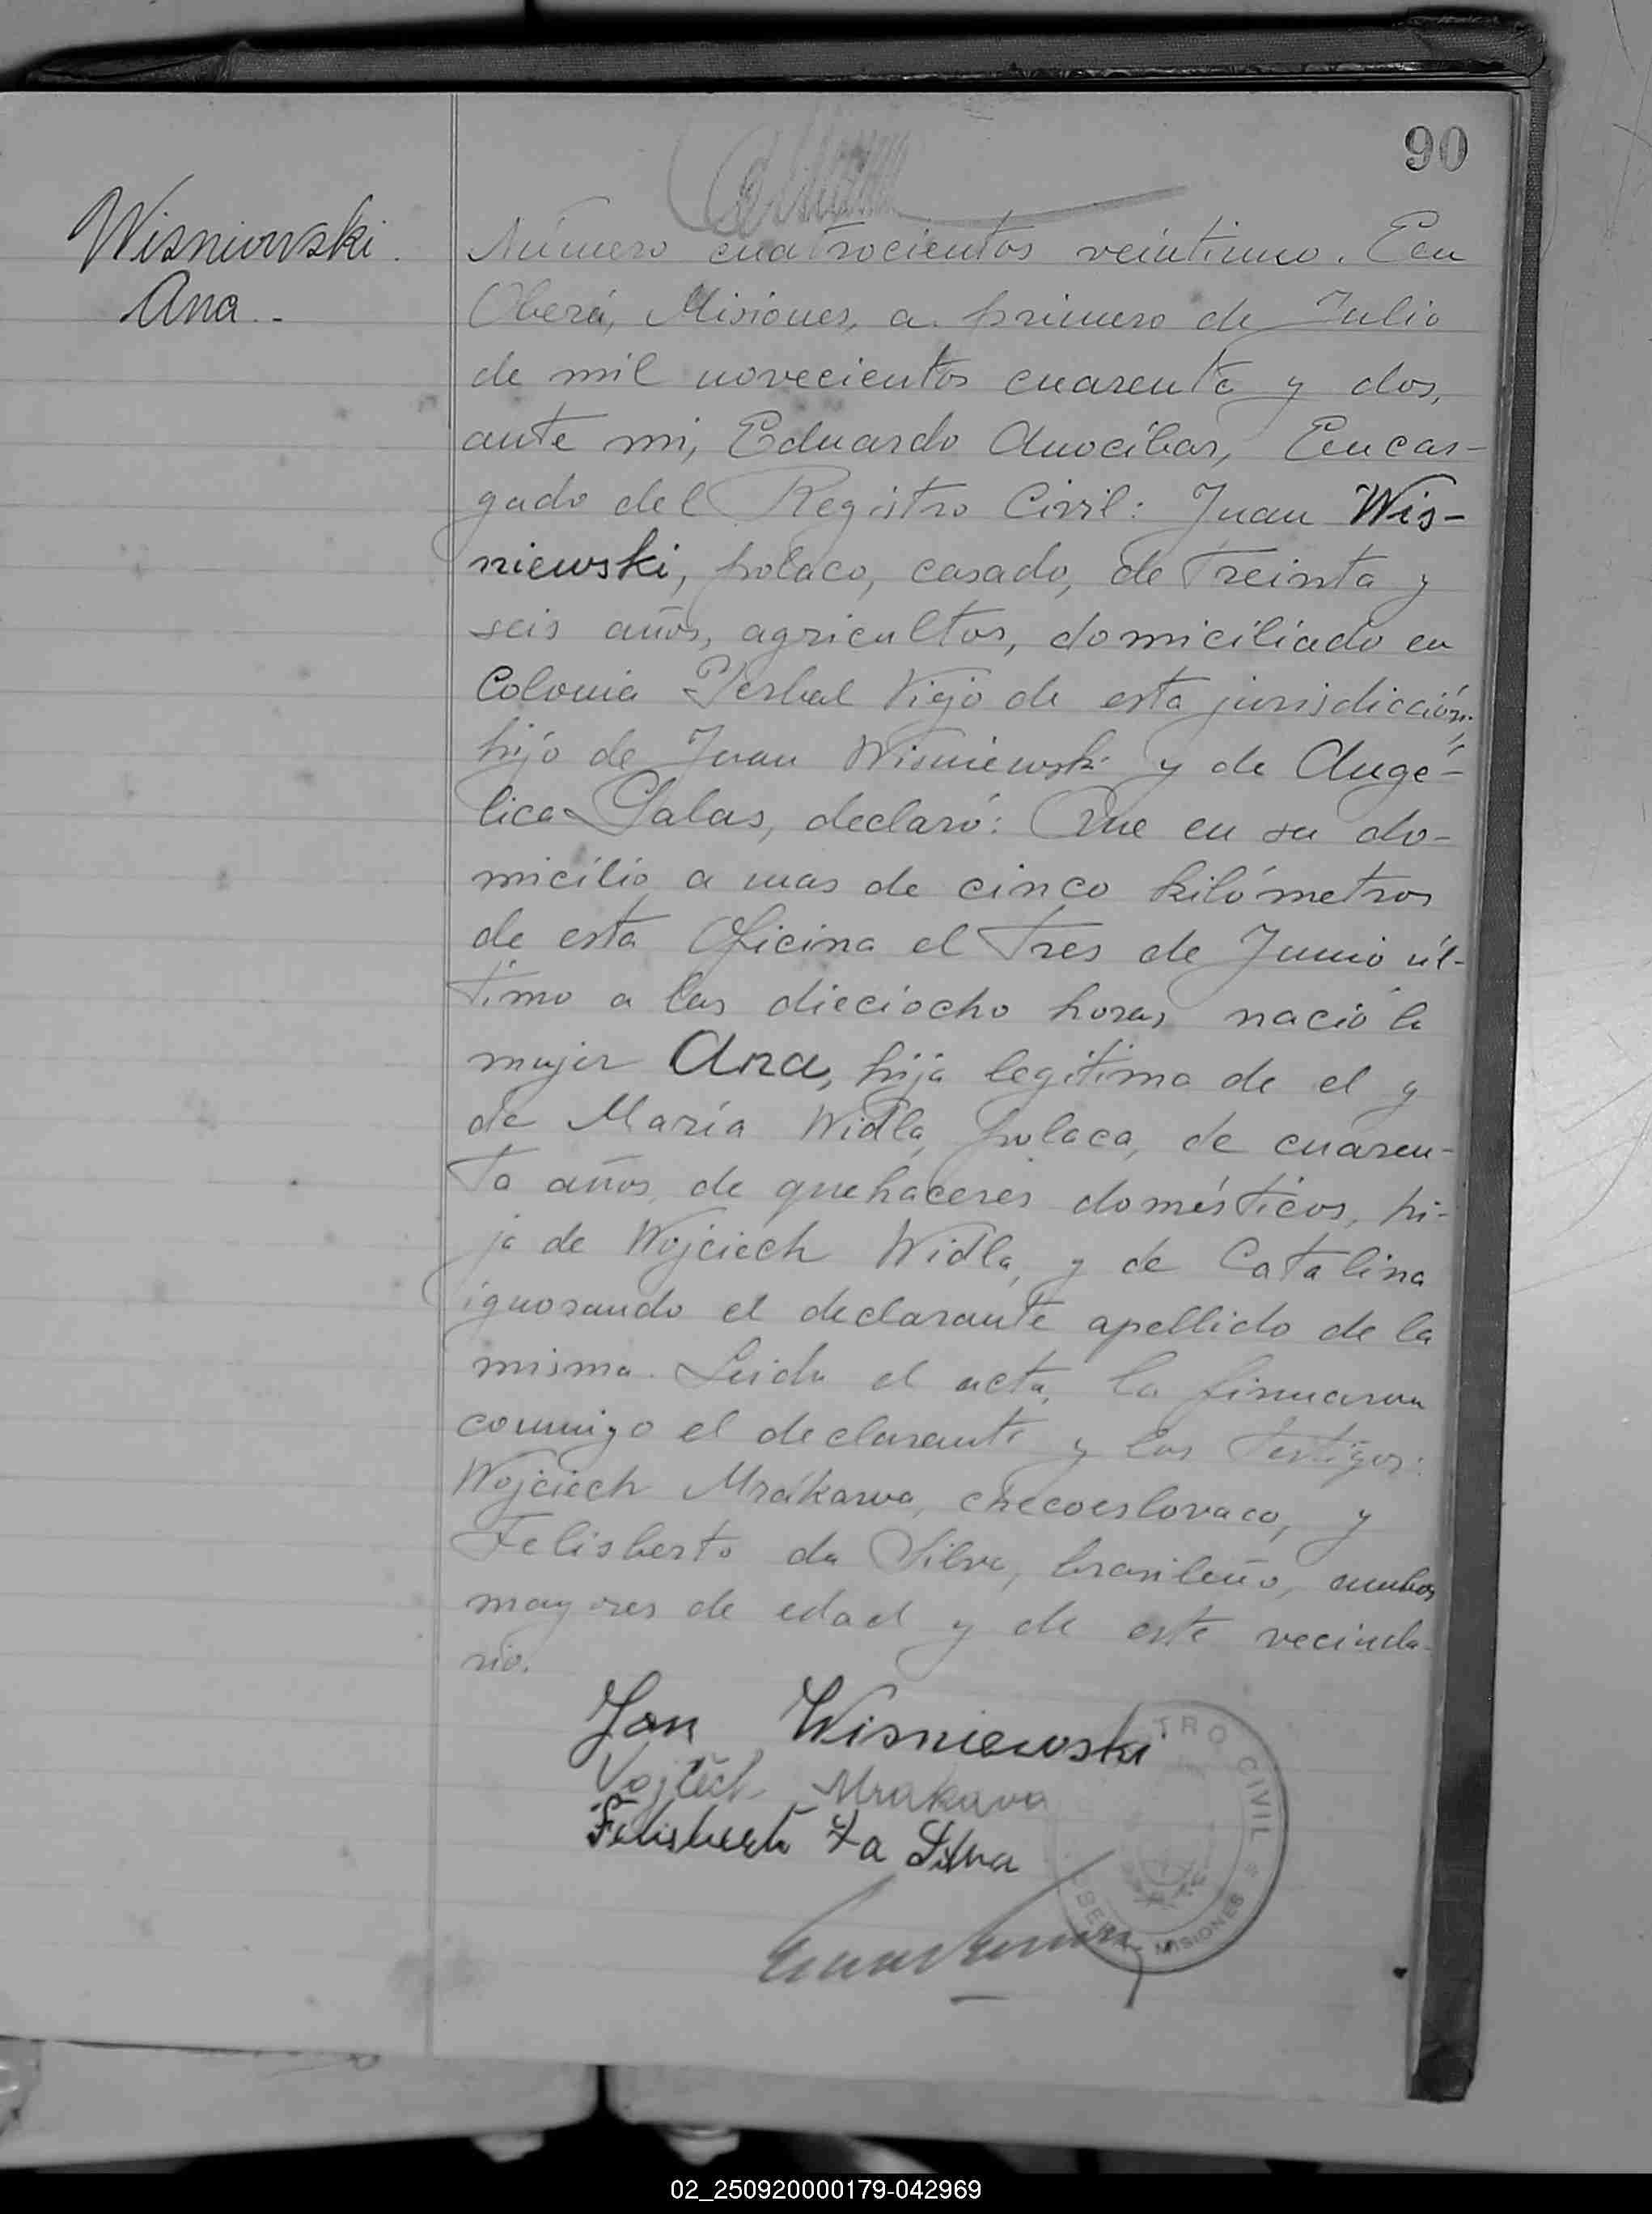 90
Wisniowski
Ana
Número cuatrocientos veintiuno. En
Oberá, Misiones, a primero de Julio
de mil novecientos cuarenta y dos,
ante mi, Eduardo Anocíbar, Encar-
gado del Registro Civil: Juan Wis-
niewski, polaco, casado, de treinta y
seis años, agricultor, domiciliado en
Colonia Yerbal Viejo de esta jurisdicción,
hijo de Juan Wisniewski y de Angé-
lica Galas, declaró: Que en su do-
micilio a mas de cinco kilómetros
de esta Oficina el tres de Junio úl-
timo a las dieciocho horas nació la
mujer Ana, hija legítima de el y
de María Widla, polaca, de cuaren-
ta años, de quehaceres domésticos, hi-
ja de Wojciech Widla, y de Catalina
ignorando el declarante apellido de la
misma. Leida el acta, la firmaron
conmigo el declarante y los testigos:
Wojciech Mrakawa, checoeslovaco, y
Felisberto da Silva, brasileño, ambos
mayores de edad y de este vecinda-
rio.
Jan Wisniewski
Vojtěch Mrakava
Felisberto Da Silva
TRO CIVIL
BERA - MISIONES
02_250920000179-042969